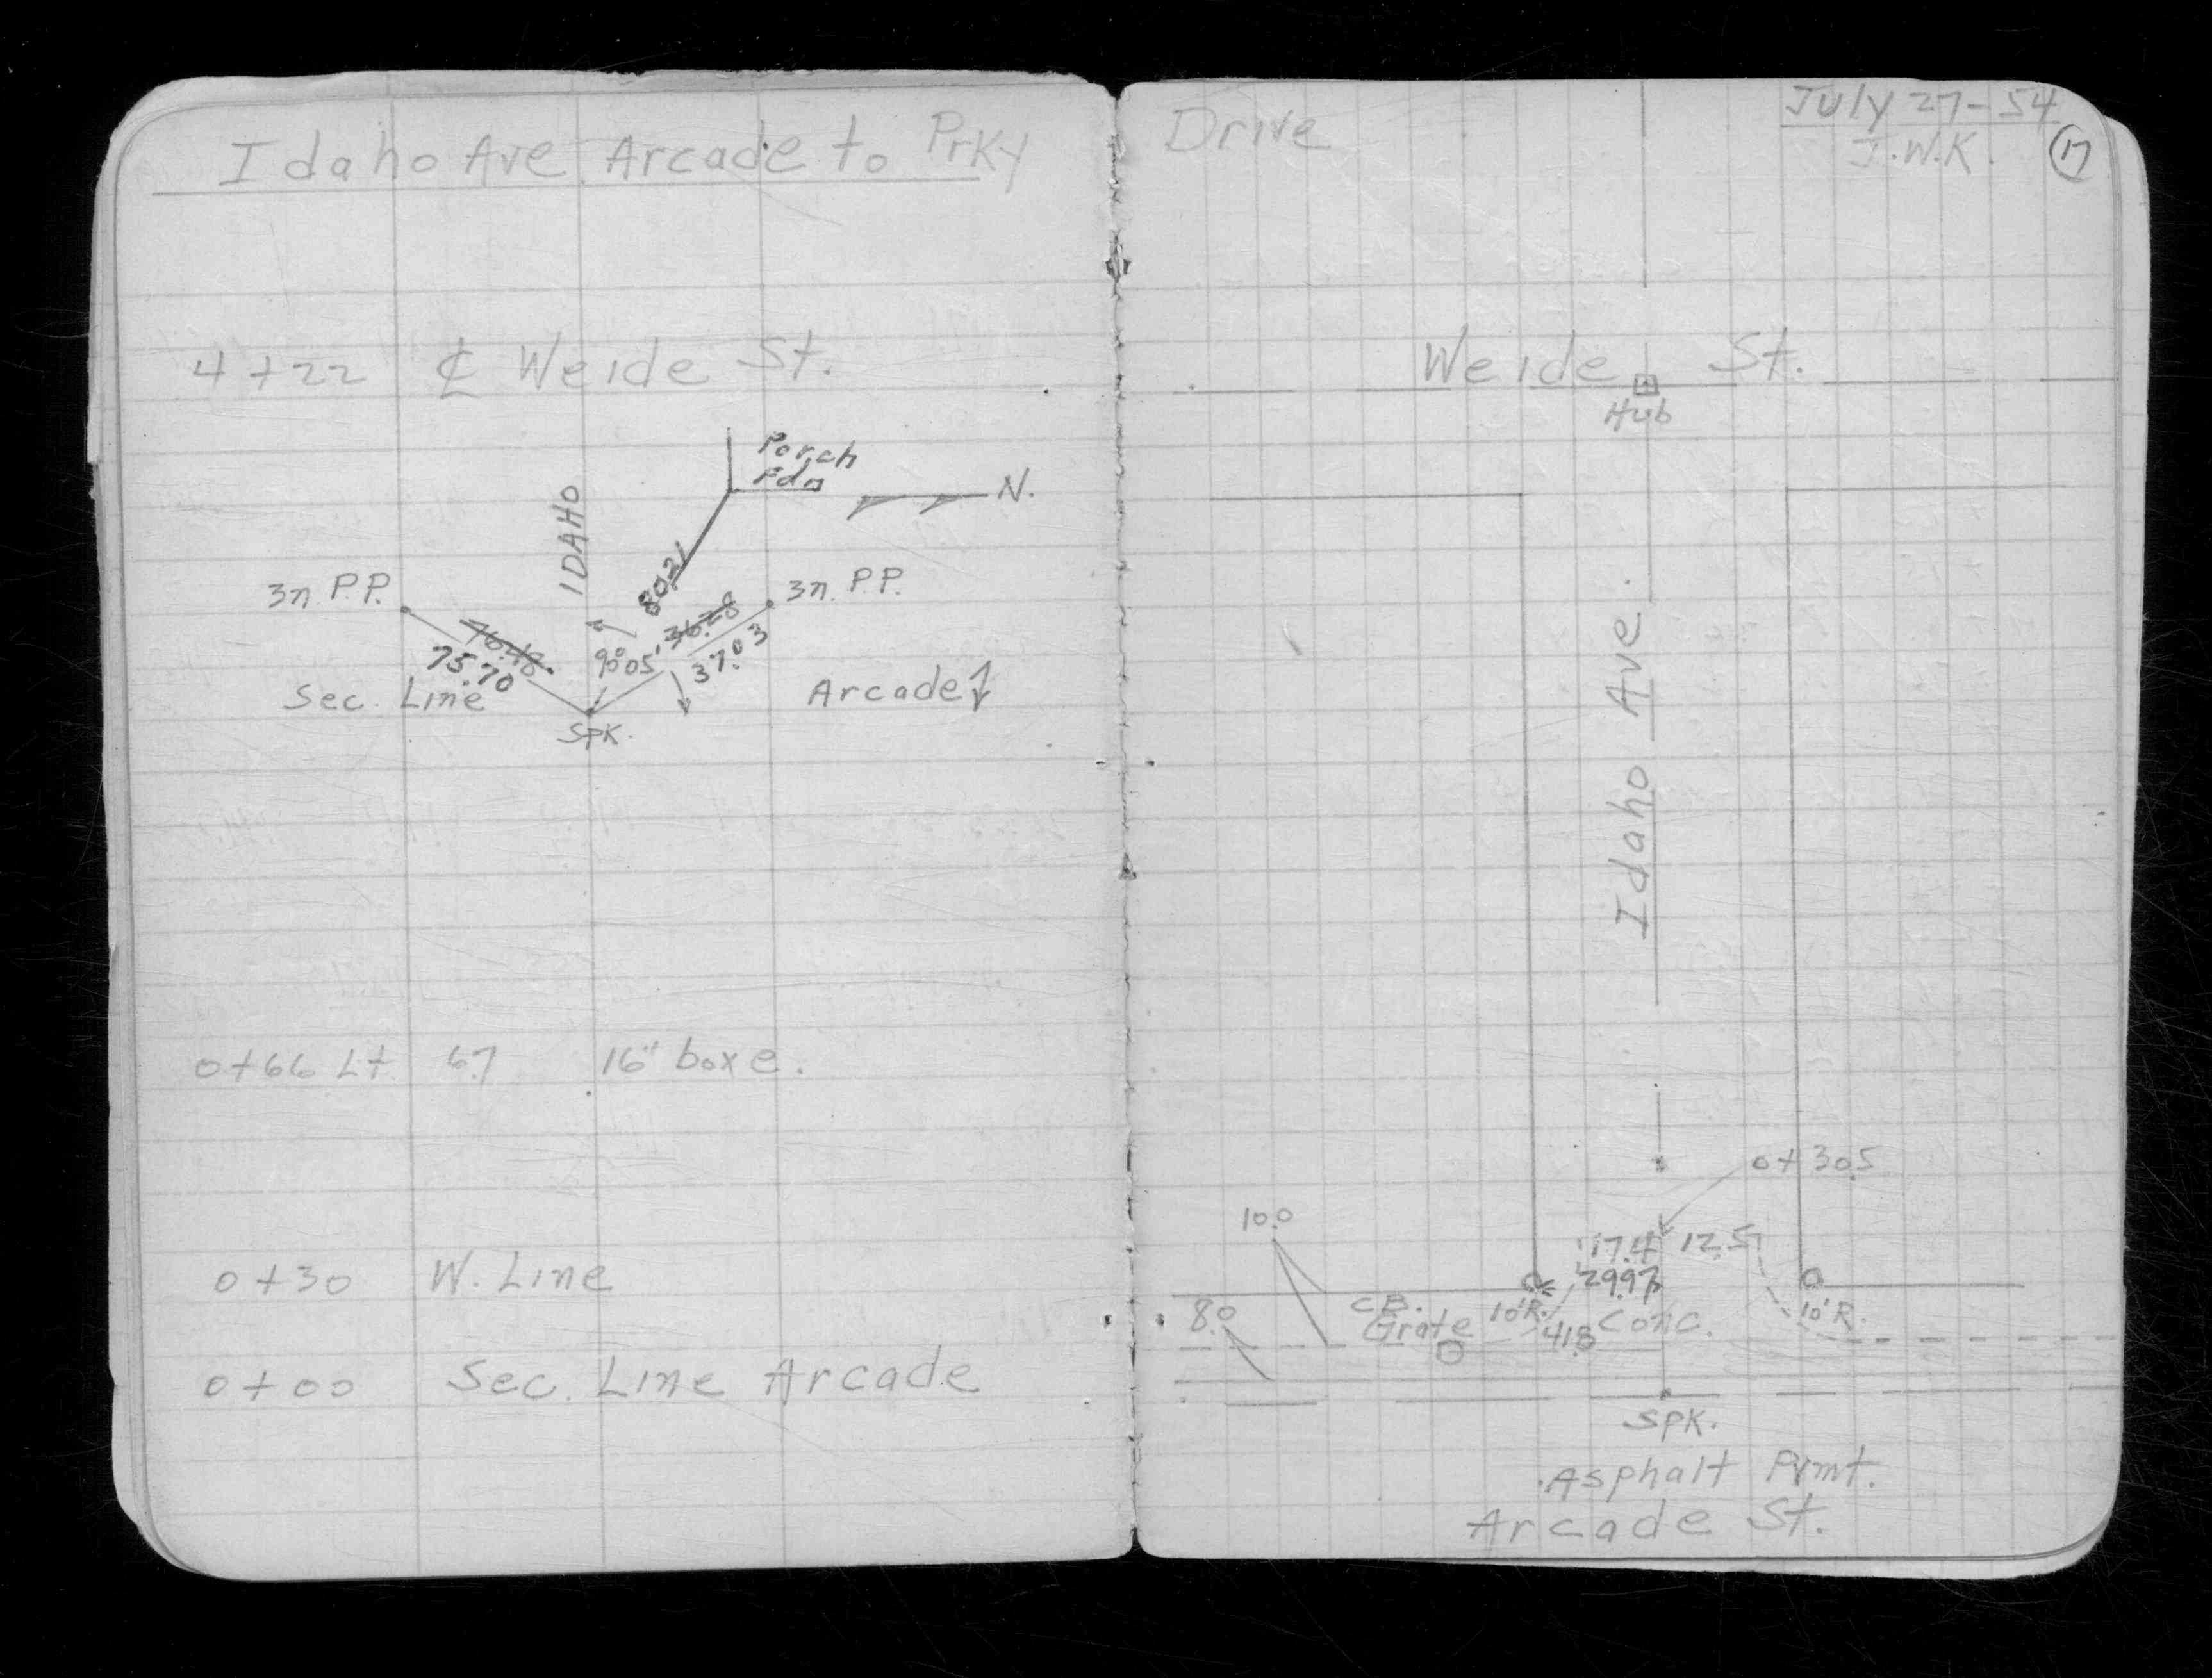 Idaho Ave Arcade to Prky Drive
July 27-54
J.W.K.
17
4+22 ₵ Weide St.
Porch
Fdn
N.
IDAHO
80.21
3n. P.P.
3n. P.P.
76.48
75.70
36.28
37.03
90°05'
Sec. Line
Arcade
SPK.
0+66 Lt 6.7 16" boxe.
0+30 W. Line
0+00 Sec. Line Arcade
Weide St.
Hub
Idaho Ave.
0+30.5
10.0
17.4 12.5
29.97
8.0
C.B.
Grate
10'R.
41.8
Conc.
10'R.
SPK.
Asphalt Pvmt.
Arcade St.